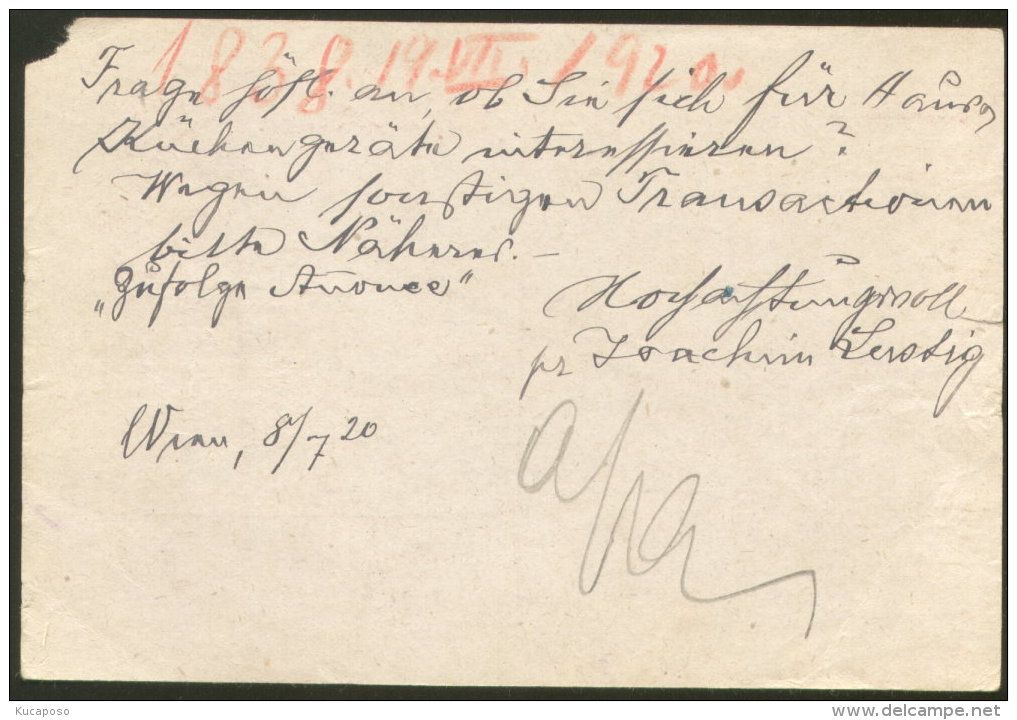 1838. 19. VII. 1920.
Frage höfl. an, ob Sie sich für Haus,
Küchengeräte interessieren?
Wegen sonstigen Transactionen
bitte Näheres. –
„Zufolge Anonce"
Hochachtungsvoll
pr Joachim Lustig
Wien, 8/7 20
Kucaposo
delcampe.net